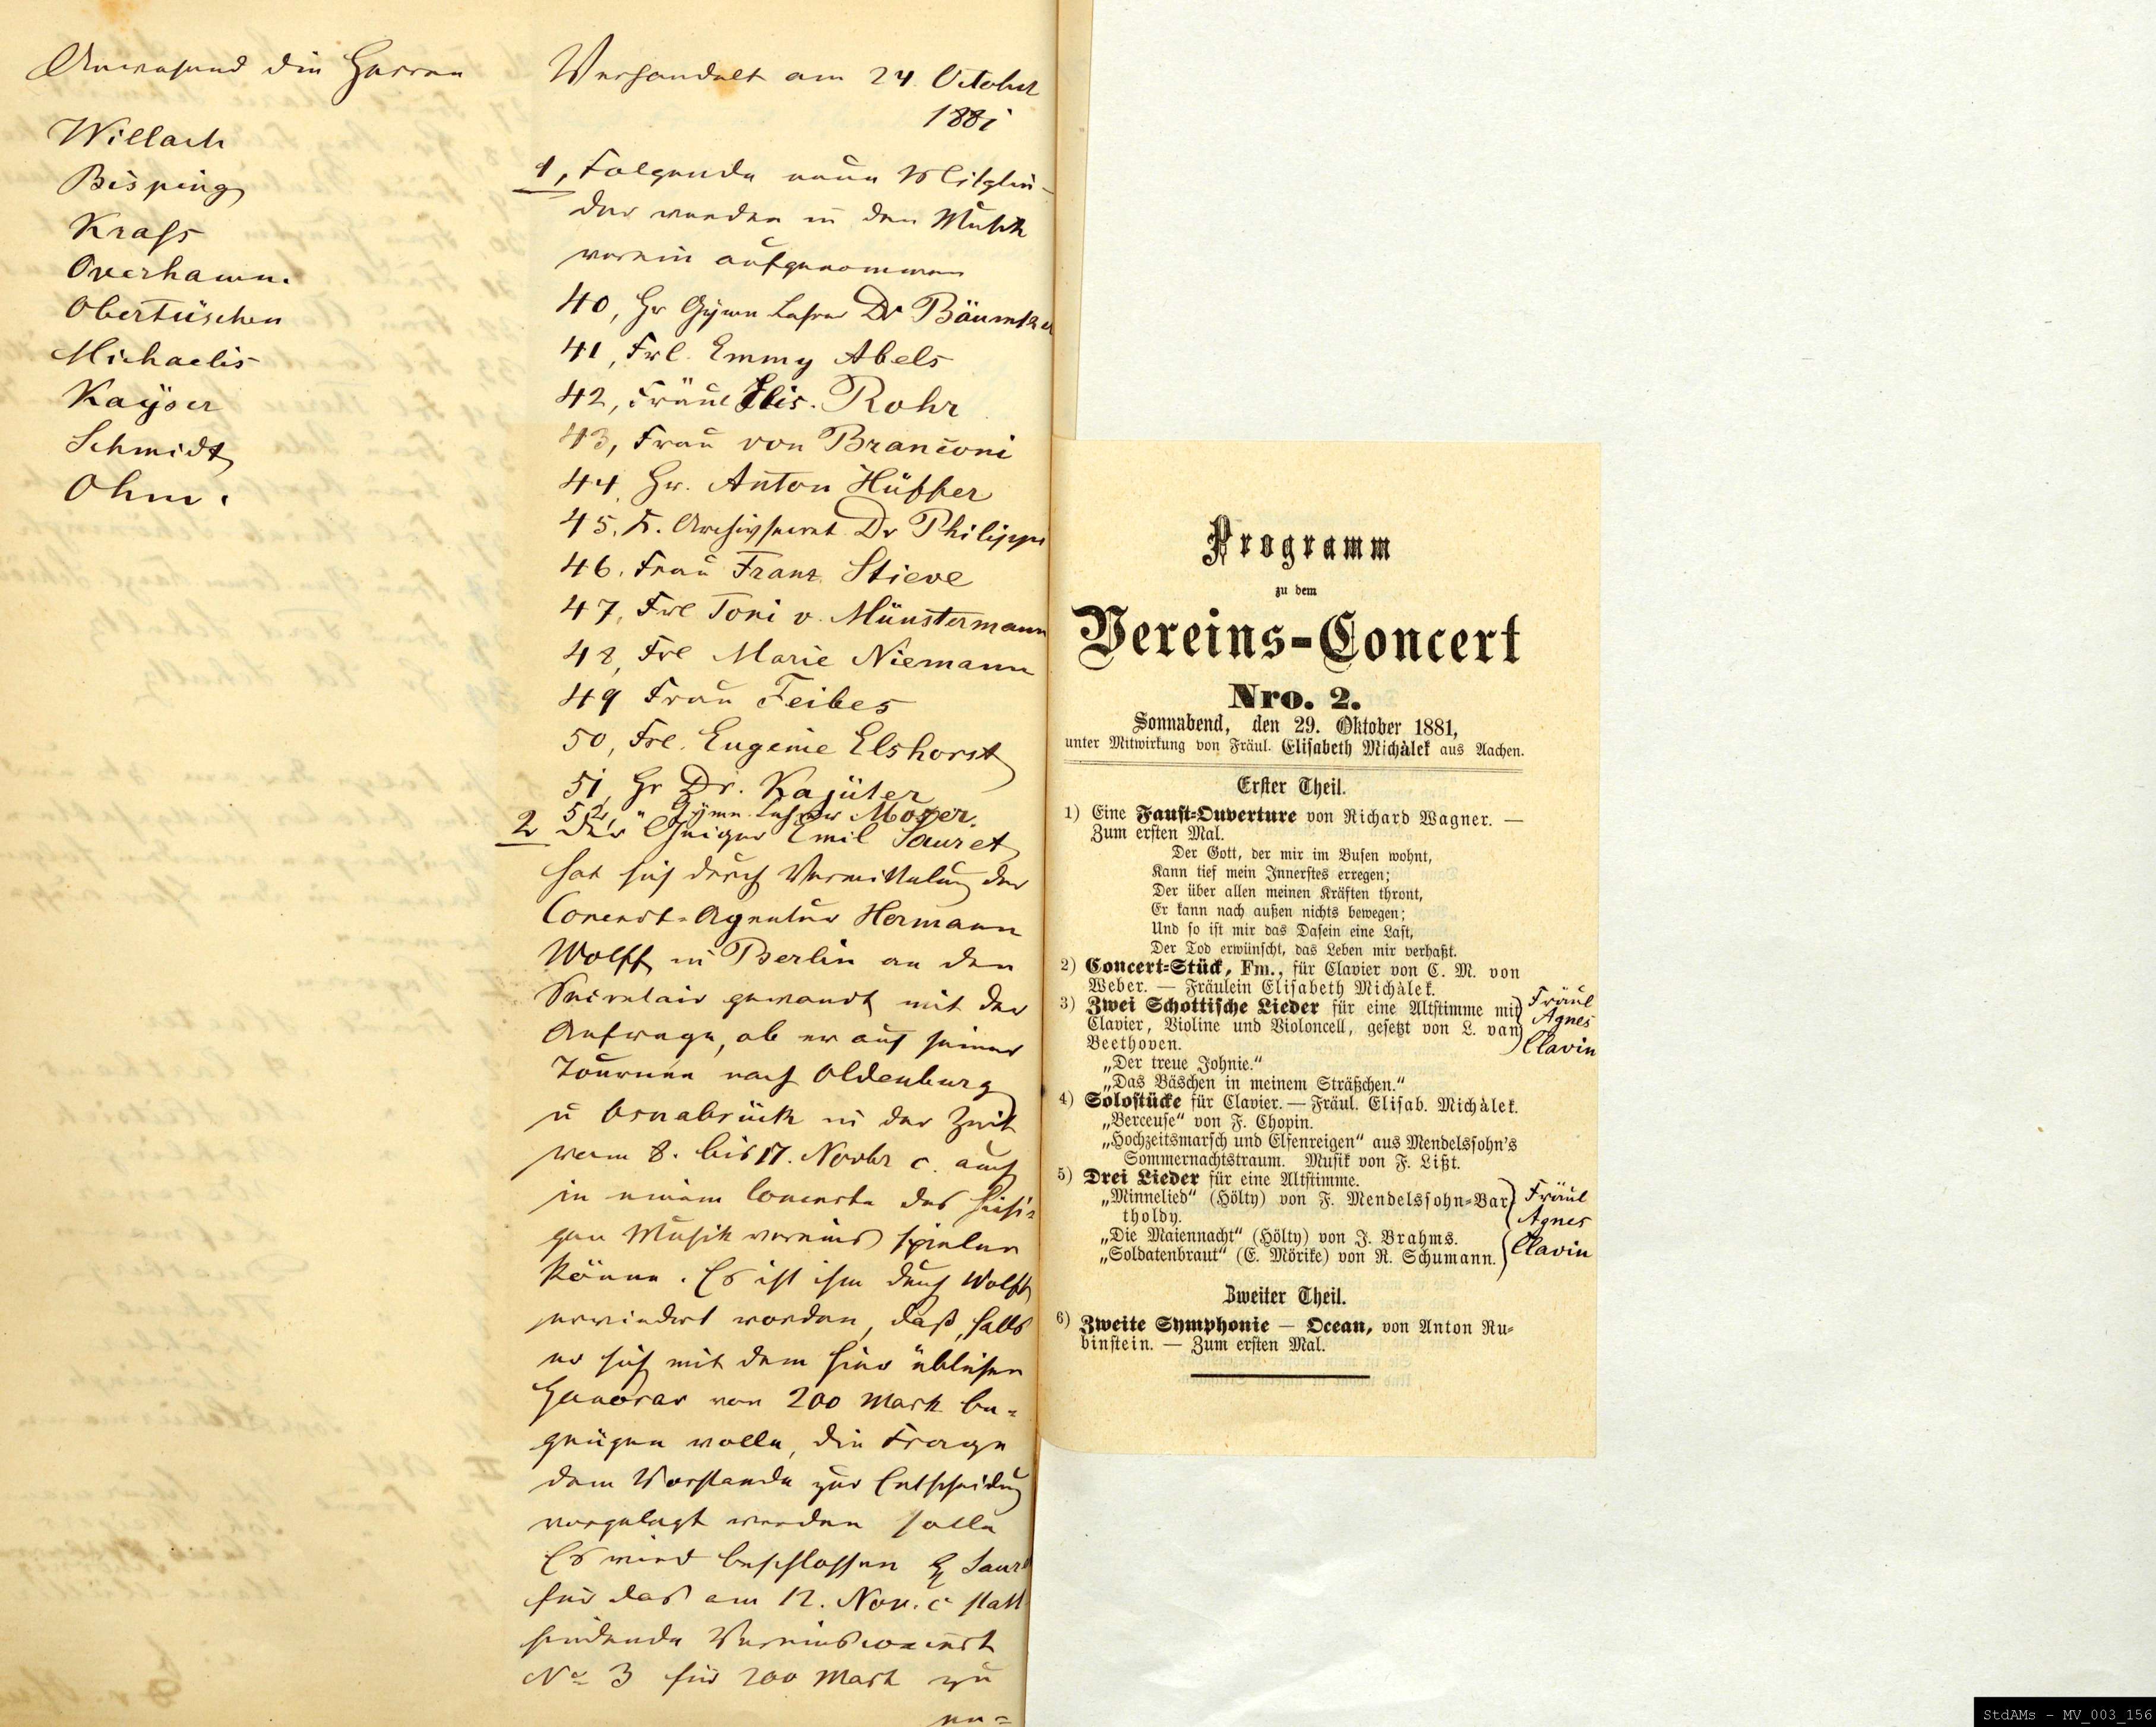 Anwesend die Herren
Willach
Bisping
Krass
Overhamm.
Obertüschen
Michaelis
Kayser
Schmidt
Ohm.
Verhandelt am 24. October
1881
1, Folgende neue Mitglie-
der werden in den Musik
verein aufgenommen
40, Hr Gymn Lehrer Dr Bäumker
41, Frl. Emmy Abels
42, Fräul Elis. Rohr
43, Frau von Branconi
44, Hr. Anton Hüffer
45, K. Archivsecret. Dr Philippi
46, Frau Franz Stieve
47, Frl Toni v. Münstermann
48, Frl Marie Niemann
49 Frau Feibes
50, Frl. Eugenie Elshorst
51, Hr Dr. Kajüter
52, " Gymn. Lehrer Moser.
2 Der Geiger Emil Sauret
hat sich durch Vermittelung der
Concert-Agentur Hermann
Wolff in Berlin an den
Secretair gewandt mit der
Anfrage, ob er auf seiner
Tournee nach Oldenburg
u Osnabrück in der Zeit
vom 8. bis 17. Novbr c. auch
in einem Concerte des hiesi-
gen Musikvereins spielen
könne. Es ist ihm durch Wolff
erwiedert worden, daß, falls
er sich mit dem hier üblichen
Honorar von 200 Mark be-
gnügen wolle, die Frage
dem Vorstande zur Entscheidung
vorgelegt werden solle
Es wird beschlossen H Sauret
für das am 12. Nov. c statt
findende Vereinsconcert
No 3 für 200 Mark zu
en-
Programm
zu dem
Vereins-Concert
Nro. 2.
Sonnabend, den 29. Oktober 1881,
unter Mitwirkung von Fräul. Elisabeth Michàlek aus Aachen.
Erster Theil.
1) Eine Faust-Ouverture von Richard Wagner. —
Zum ersten Mal.
Der Gott, der mir im Busen wohnt,
Kann tief mein Innerstes erregen;
Der über allen meinen Kräften thront,
Er kann nach außen nichts bewegen;
Und so ist mir das Dasein eine Last,
Der Tod erwünscht, das Leben mir verhaßt.
2) Concert-Stück, Fm., für Clavier von C. M. von
Weber. — Fräulein Elisabeth Michàlek.
3) Zwei Schottische Lieder für eine Altstimme mit
Clavier, Violine und Violoncell, gesetzt von L. van
Beethoven.
Fräul
Agnes
Clavin
„Der treue Johnie.“
„Das Bäschen in meinem Sträßchen.“
4) Solostücke für Clavier. — Fräul. Elisab. Michàlek.
„Berceuse“ von F. Chopin.
„Hochzeitsmarsch und Elfenreigen“ aus Mendelssohn's
Sommernachtstraum. Musik von F. Lißt.
5) Drei Lieder für eine Altstimme.
„Minnelied“ (Hölty) von F. Mendelssohn-Bar
tholdy.
„Die Maiennacht“ (Hölty) von J. Brahms.
„Soldatenbraut“ (E. Mörike) von R. Schumann.
Fräul
Agnes
Clavin
Zweiter Theil.
6) Zweite Symphonie — Ocean, von Anton Ru-
binstein. — Zum ersten Mal.
StdAMs - MV_003_156